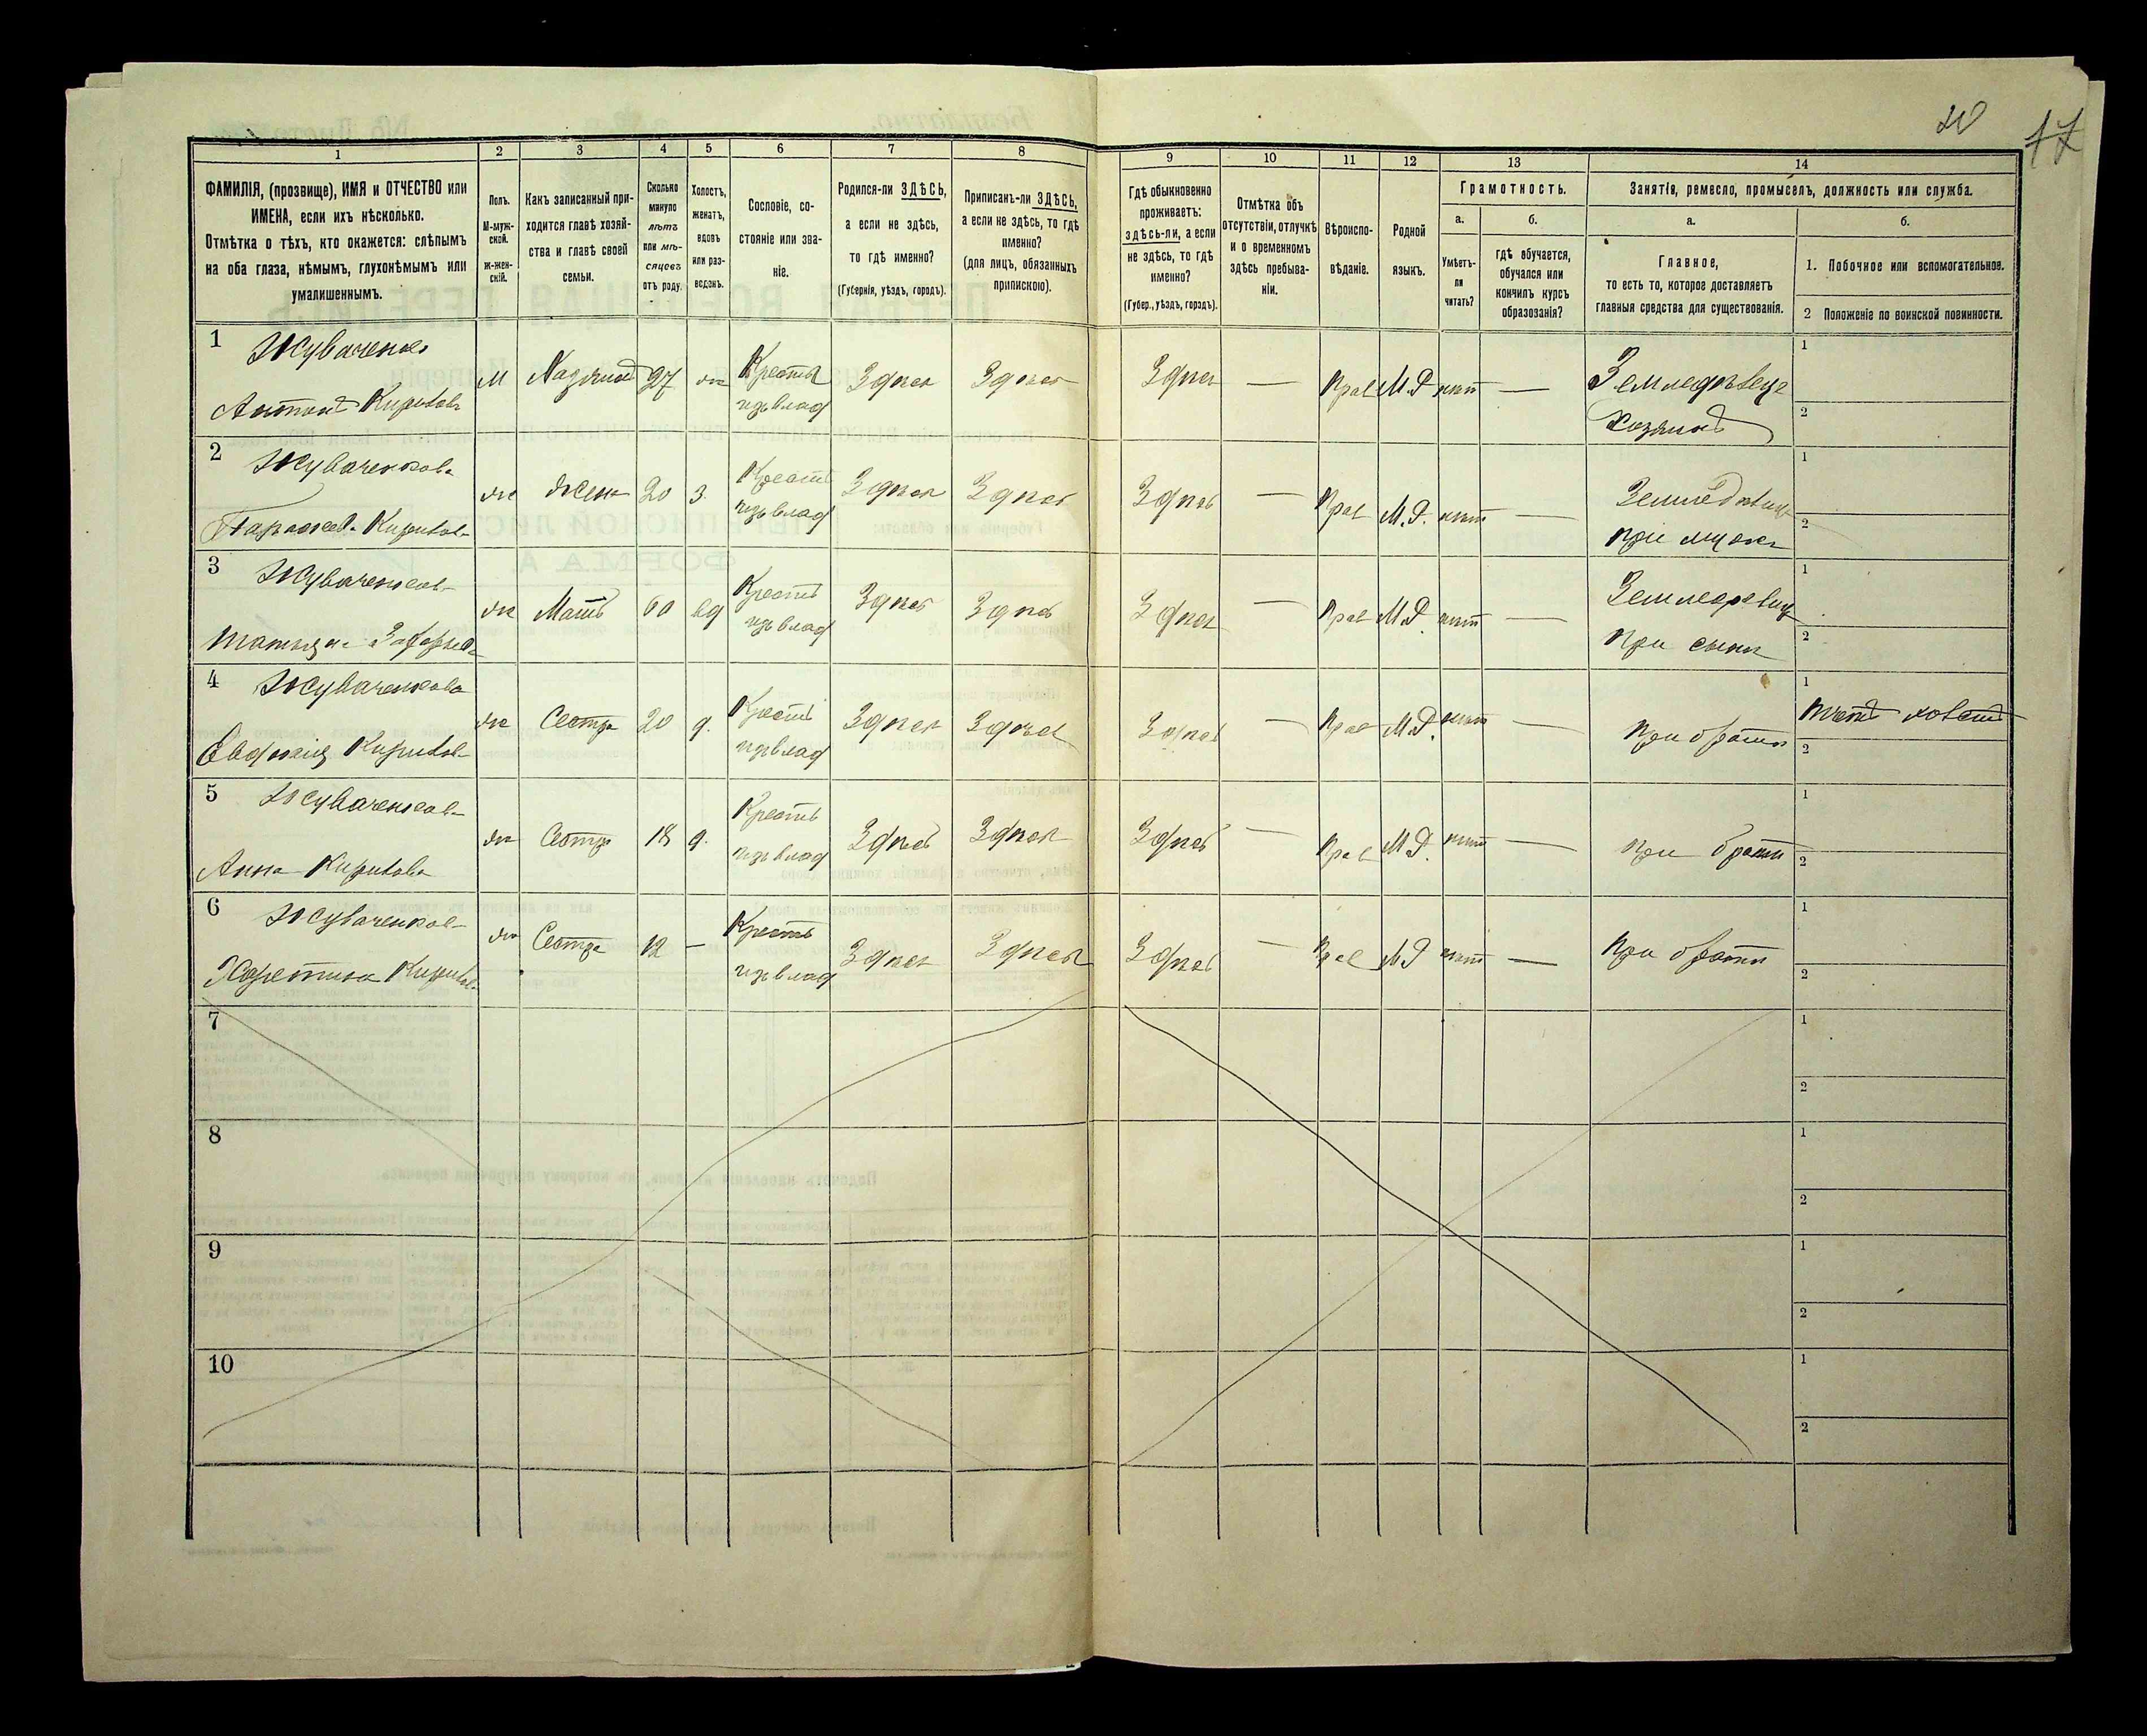 20
17
1 2 3 4 5 6 7 8 9 10 11 12 13 14
ФАМИЛІЯ, (прозвище), ИМЯ и ОТЧЕСТВО или
ИМЕНА, если ихъ нѣсколько.
Отмѣтка о тѣхъ, кто окажется: слѣпымъ
на оба глаза, нѣмымъ, глухонѣмымъ или
умалишеннымъ.
Полъ.
М-муж-
ской.
ж-жен-
скій.
Какъ записанный при-
ходится главѣ хозяй-
ства и главѣ своей
семьи.
Сколько
минуло
лѣтъ
или мѣ-
сяцевъ
отъ роду.
Холостъ,
женатъ,
вдовъ
или раз-
веденъ.
Сословіе, со-
стояніе или зва-
ніе.
Родился-ли ЗДѢСЬ,
а если не здѣсь,
то гдѣ именно?
(Губернія, уѣздъ, городъ).
Приписанъ-ли ЗДѢСЬ,
а если не здѣсь, то гдѣ
именно?
(для лицъ, обязанныхъ
припискою).
Гдѣ обыкновенно
проживаетъ:
здѣсь-ли, а если
не здѣсь, то гдѣ
именно?
(Губер., уѣздъ, городъ).
Отмѣтка объ
отсутствіи, отлучкѣ
и о временномъ
здѣсь пребыва-
ніи.
Вѣроиспо-
вѣданіе.
Родной
языкъ.
Грамотность.
а.
Умѣетъ-
ли
читать?
б.
гдѣ обучается,
обучался или
кончилъ курсъ
образованія?
Занятія, ремесло, промыселъ, должность или служба.
а.
Главное,
то есть то, которое доставляетъ
главныя средства для существованія.
б.
1. Побочное или вспомогательное.
2 Положеніе по воинской повинности.
1 Жуваченко
Антонъ Кириловъ
М Хазяинъ 27 ж Крестья
изъ влад Здѣсь Здѣсь Здѣсь — Прав М.Р нѣт —
Земледѣлецъ
Хозяинъ
1
2
2 Жуваченкова
Кирилова
ж Жена 20 з. Крест
изъ влад Здѣсь Здѣсь Здѣсь — Прав М.Р. нѣт —
при мужѣ
1
2
3 Жуваченкова
ж Мать 60 вд Крест
изъ влад Здѣсь Здѣсь Здѣсь — Прав М.Р. нѣт —
при сынѣ
1
2
4 Жуваченкова
Кирилова
ж Сестра 20 д. Крест
изъ влад Здѣсь Здѣсь Здѣсь — Прав М.Р. нѣт —
при братѣ
1
2
5 Жуваченкова
Анна Кирилова
ж Сестра 18 д. Крестъ
изъ влад Здѣсь Здѣсь Здѣсь — Прав М.Р. нѣт —
при братѣ
1
2
6 Жуваченкова
Харетина Кирилова
ж Сестра 12 — Крестъ
изъ влад Здѣсь Здѣсь Здѣсь — Прав М.Р нѣт —
при братѣ
1
2
7
1
2
8
1
2
9
1
2
10
1
2